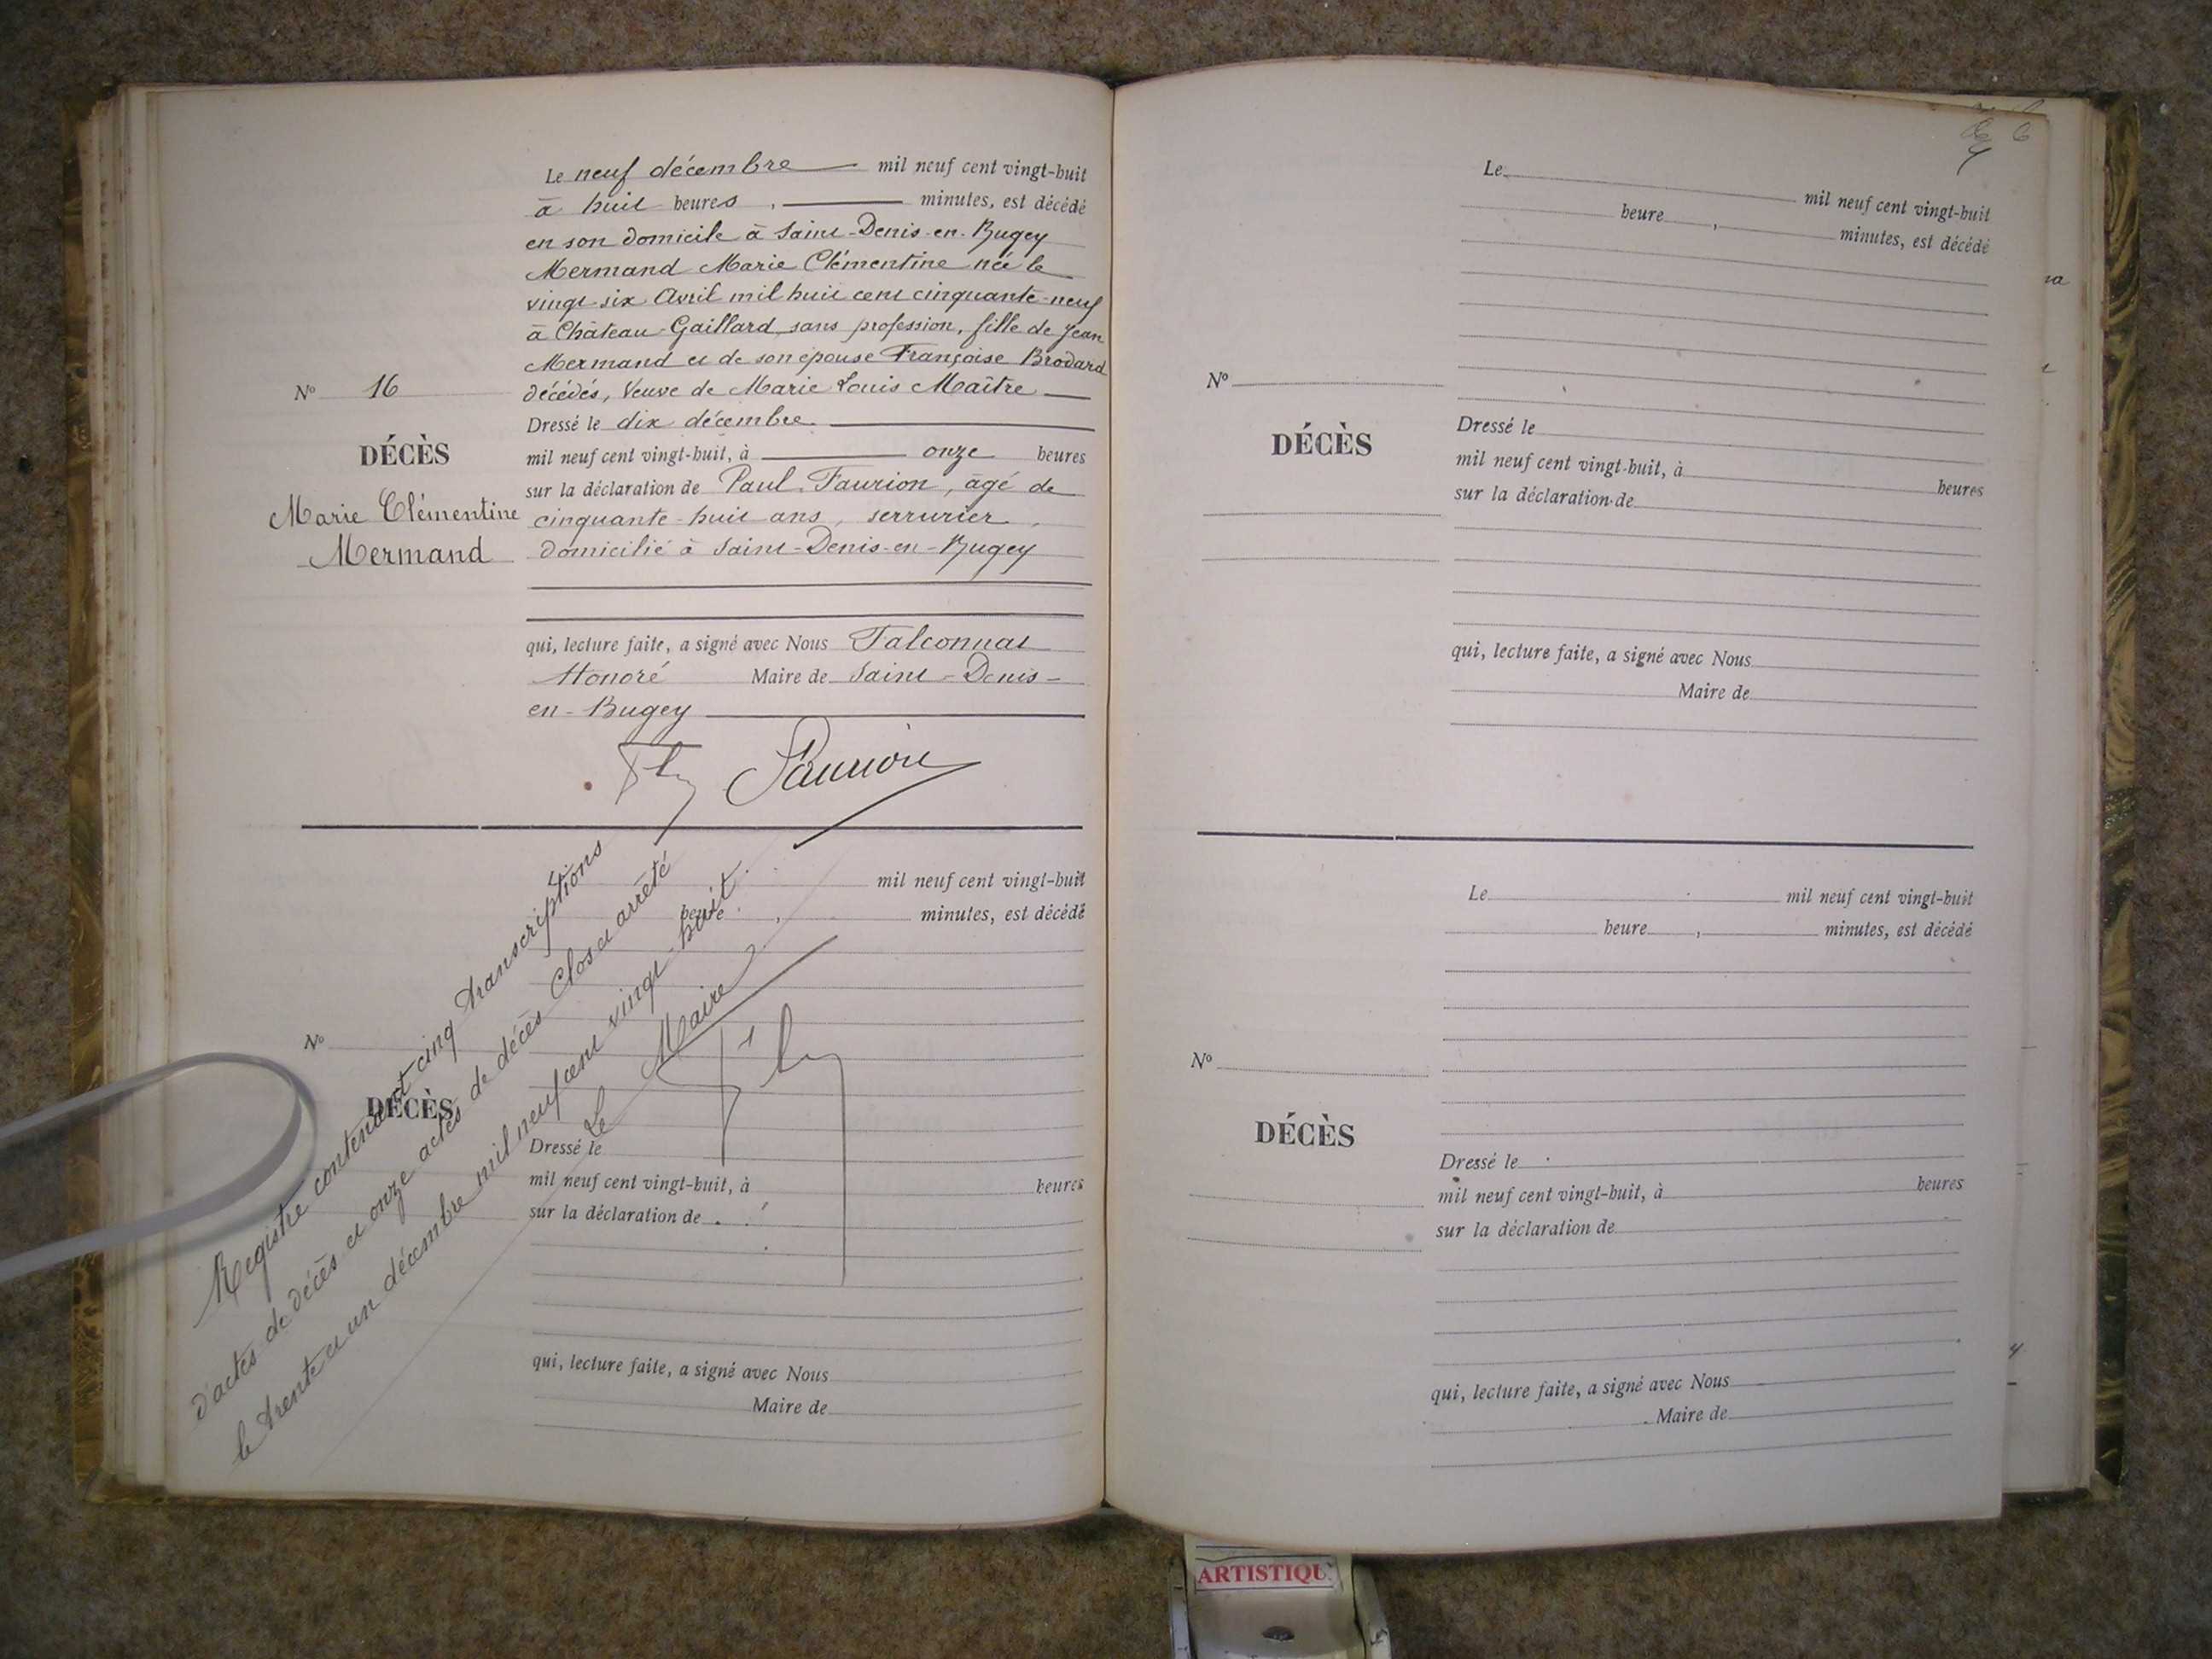 Le neuf décembre mil neuf cent vingt-huit
à huit heures , minutes, est décédé
en son domicile à Saint-Denis-en-Bugey
Mermand Marie Clémentine née le
vingt six Avril mil huit cent cinquante-neuf
à Château-Gaillard, sans profession, fille de Jean
Mermand et de son épouse Françoise Brodard
décédés, Veuve de Marie Louis Maître
Nº 16
DÉCÈS
Marie Clémentine
Mermand
Dressé le dix décembre
mil neuf cent vingt-huit, à onze heures
sur la déclaration de Paul Faurion, âgé de
cinquante-huit ans, serrurier,
domicilié à Saint-Denis-en-Bugey
qui, lecture faite, a signé avec Nous Falconnat
Honoré Maire de Saint-Denis-
en-Bugey
Faurion
mil neuf cent vingt-huit
heure , minutes, est décédé
Nº
DÉCÈS
Dressé le
mil neuf cent vingt-huit, à heures
sur la déclaration de
qui, lecture faite, a signé avec Nous
Maire de
Registre contenant cinq transcriptions
d'actes de décès et onze actes de décès Clos et arrêté
le trente et un décembre mil neuf cent vingt-huit.
Le Maire
Le mil neuf cent vingt-huit
heure , minutes, est décédé
Nº
DÉCÈS
Dressé le
mil neuf cent vingt-huit, à heures
sur la déclaration de
qui, lecture faite, a signé avec Nous
Maire de
Le mil neuf cent vingt-huit
heure , minutes, est décédé
Nº
DÉCÈS
Dressé le
mil neuf cent vingt-huit, à heures
sur la déclaration de
qui, lecture faite, a signé avec Nous
Maire de
ARTISTIQU